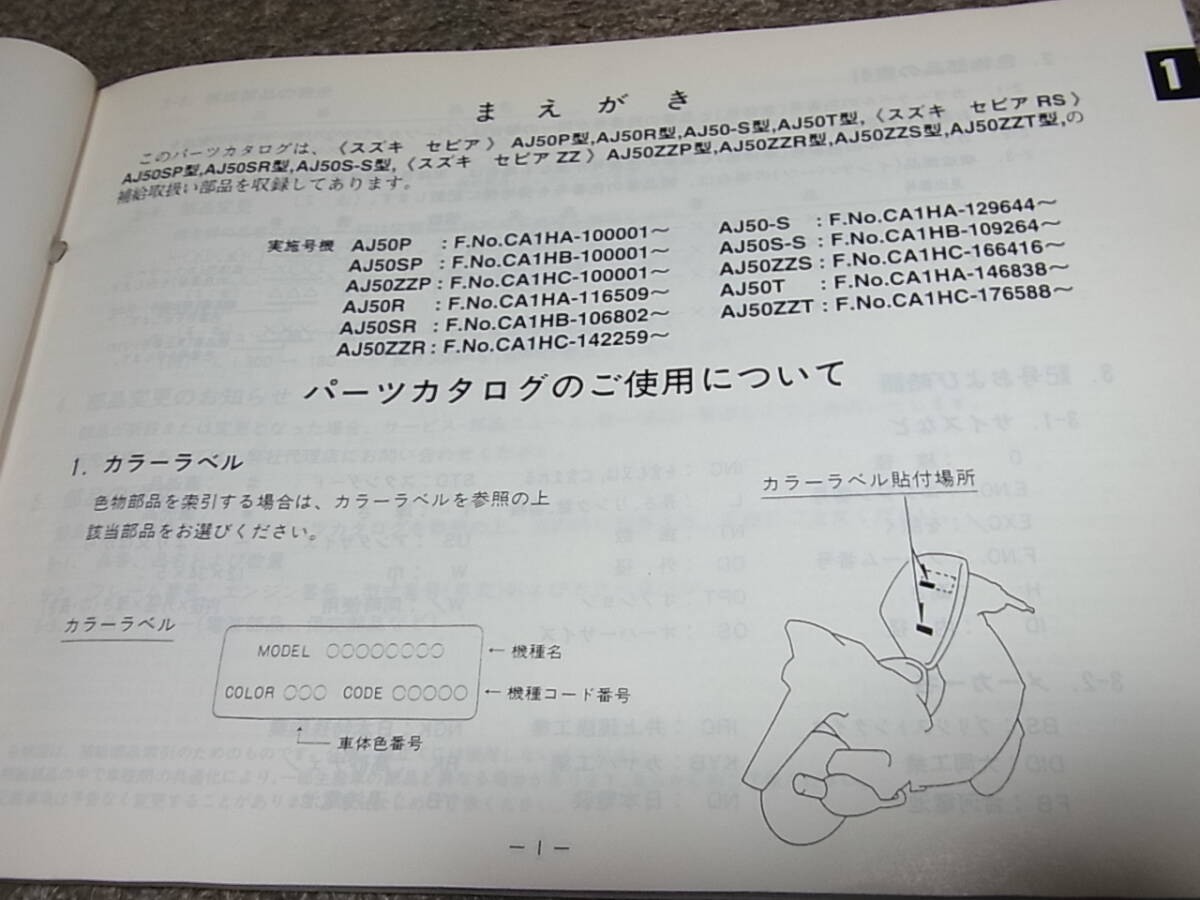 1
まえがき
このパーツカタログは、〈スズキ　セピア〉AJ50P型,AJ50R型,AJ50-S型,AJ50T型,〈スズキ　セピアRS〉
AJ50SP型,AJ50SR型,AJ50S-S型,〈スズキ　セピアZZ〉AJ50ZZP型,AJ50ZZR型,AJ50ZZS型,AJ50ZZT型,の
補給取扱い部品を収録してあります。
実施号機 AJ50P : F.No.CA1HA-100001〜
AJ50SP : F.No.CA1HB-100001〜
AJ50ZZP : F.No.CA1HC-100001〜
AJ50R : F.No.CA1HA-116509〜
AJ50SR : F.No.CA1HB-106802〜
AJ50ZZR : F.No.CA1HC-142259〜
AJ50-S : F.No.CA1HA-129644〜
AJ50S-S : F.No.CA1HB-109264〜
AJ50ZZS : F.No.CA1HC-166416〜
AJ50T : F.No.CA1HA-146838〜
AJ50ZZT : F.No.CA1HC-176588〜
パーツカタログのご使用について
1. カラーラベル
色物部品を索引する場合は、カラーラベルを参照の上
該当部品をお選びください。
カラーラベル
MODEL ○○○○○○○○ ←機種名
COLOR ○○○ CODE ○○○○○ ←機種コード番号
車体色番号
カラーラベル貼付場所
— 1 —